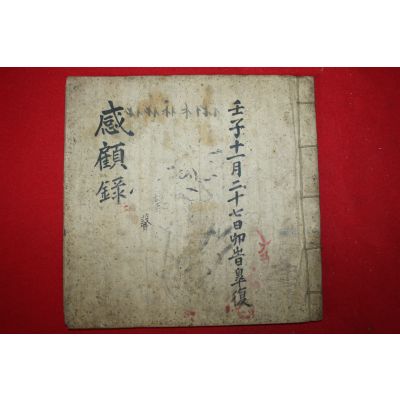 壬子十一月二十七日卯旹皐復
感顧錄